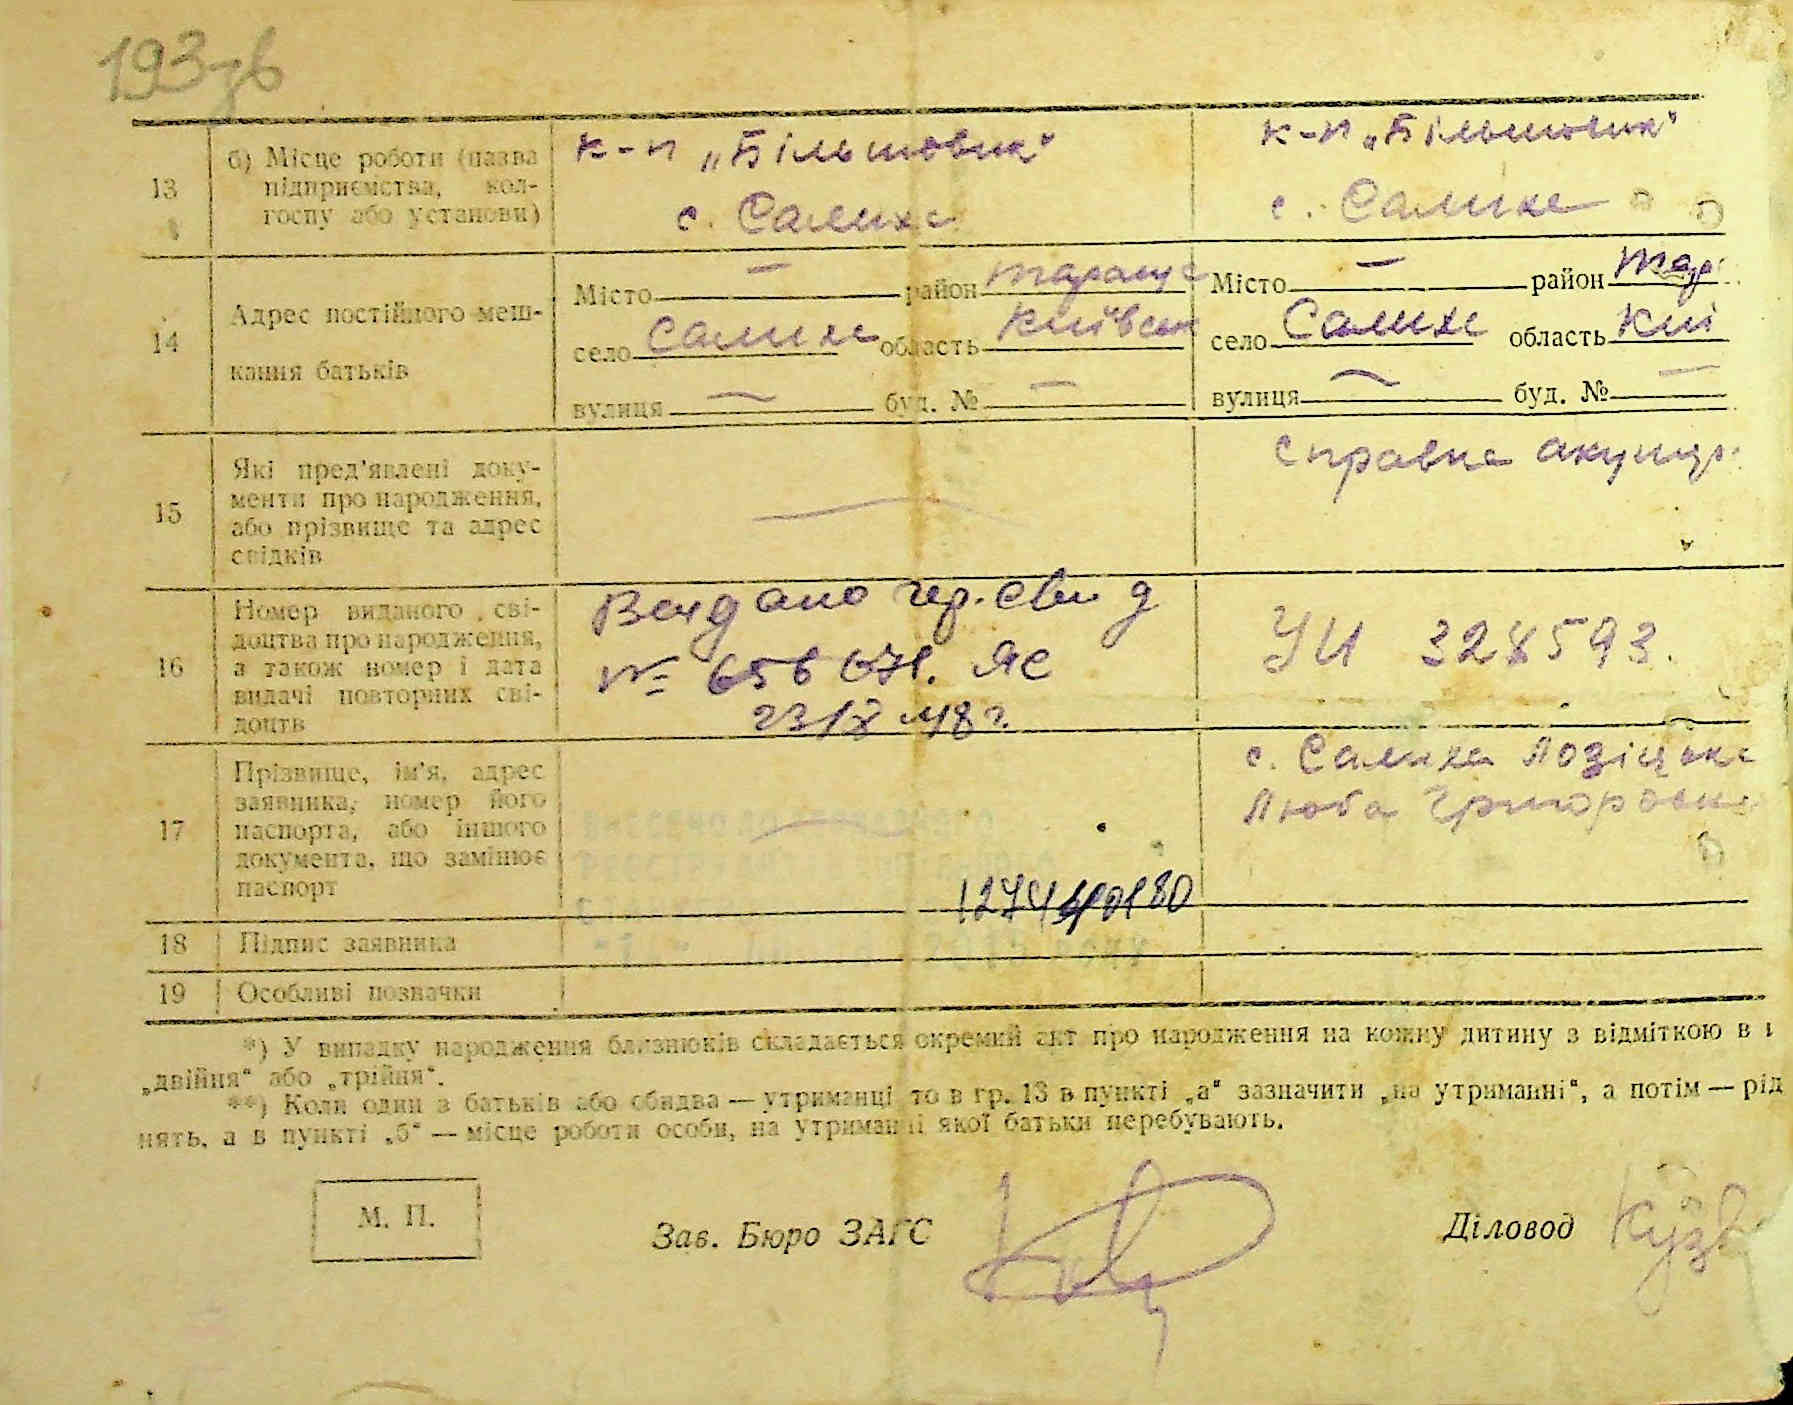 193зв
13
б) Місце роботи (назва
підприємства, кол-
госпу або установи)
к-п „Більшовик"
с. Салиха
к-п „Більшовик"
с. Салиха
14
Адрес постійного меш-
кання батьків
Місто — район Таращ
село Салиха область Київськ
вулиця — буд. № —
Місто — район Тар
село Салиха область Киї
вулиця — буд. № —
15
Які пред'явлені доку-
менти про народження,
або прізвище та адрес
свідків
—
справка акушер
16
Номер виданого сві-
доцтва про народження,
а також номер і дата
видачі повторних сві-
доцтв
№ ЯС
УИ 328593.
17
Прізвище, ім'я, адрес
заявника, номер його
паспорта, або іншого
документа, що замінює
паспорт
—
с. Салиха
Люба Григоровна
18
Підпис заявника
19
Особливі позначки
*) У випадку народження близнюків складається окремий акт про народження на кожну дитину з відміткою в
„двійня" або „трійня".
**) Коли один з батьків або обидва — утриманці то в гр. 13 в пункті „а" зазначити „на утриманні", а потім — рід
нять, а в пункті „б" — місце роботи особи, на утриманні якої батьки перебувають.
М. П.
Зав. Бюро ЗАГС
Діловод